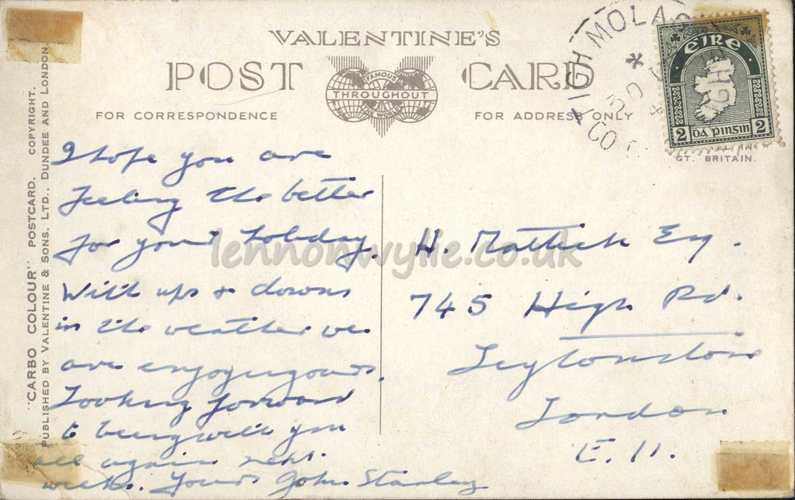 VALENTINE'S
POST CARD
FAMOUS
THROUGHOUT
THE WORLD
FOR CORRESPONDENCE
FOR ADDRESS ONLY
GT. BRITAIN.
"CARBO COLOUR" POSTCARD. COPYRIGHT.
PUBLISHED BY VALENTINE & SONS, LTD., DUNDEE AND LONDON
TIGH MOLA
30
CO
éIRe
2 Dá pinsin 2
I hope you are
feeling the better
for your holiday.
With ups & downs
in the weather we
are enjoying ours.
Looking forward
to being with you
all again next
week. Yours John Stanley
H. Mattick Esq.
745 High Rd.
Leytonstone
London
E.11.
lennonwylie.co.uk